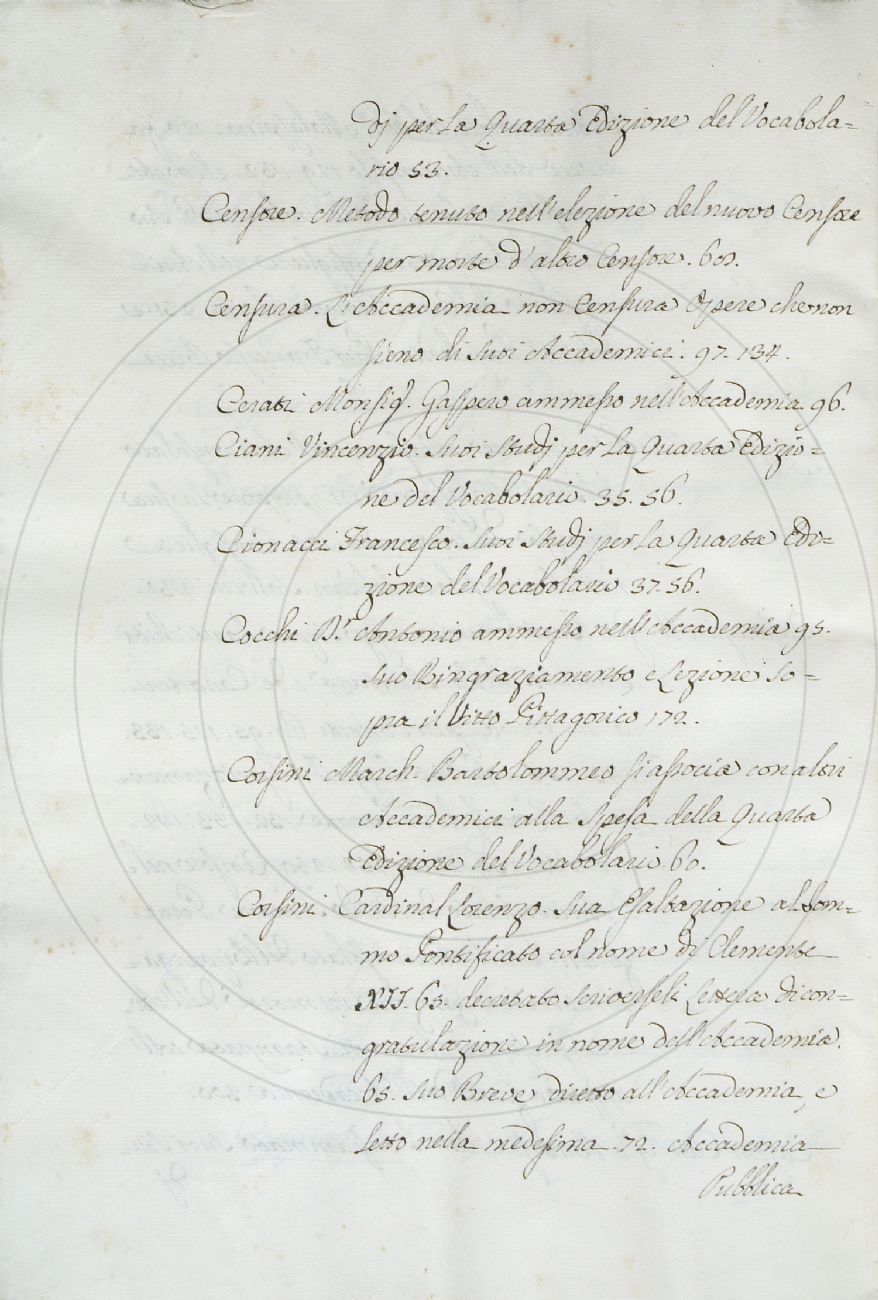 dj per la Quarta Edizione del Vocabola=
rio 53.
Censore. Metodo tenuto nell'elezione del nuovo Censore
per morte d'altro Censore. 60.
Censura. L'Accademia non Censura Opere che non
sieno di suoi Accademici. 97. 134.
Cerati Monsig.r Gaspero ammesso nell'Accademia 96.
Ciani Vincenzio. Suoi Studj per la Quarta Edizio=
ne del Vocabolario. 35. 56.
Cionacci Francesco. Suoi Studj per la Quarta Edi=
zione del Vocabolario 37. 56.
Cocchi D.r Antonio ammesso nell'Accademia 95.
Suo Ringraziamento, e Lezione so=
pra il Vitto Pittagorico 172.
Corsini March. Bartolommeo si associa con altri
Accademici alla Spesa della Quarta
Edizione del Vocabolario. 60.
Corsini Cardinal Lorenzo. Sua Esaltazione al Som=
mo Pontificato col nome di Clemente
XII. 65. decretato scriverseli Lettera di con=
gratulazione in nome dell'Accademia.
65. Suo Breve diretto all'Accademia, e
letto nella medesima. 72. Accademia
Pubblica